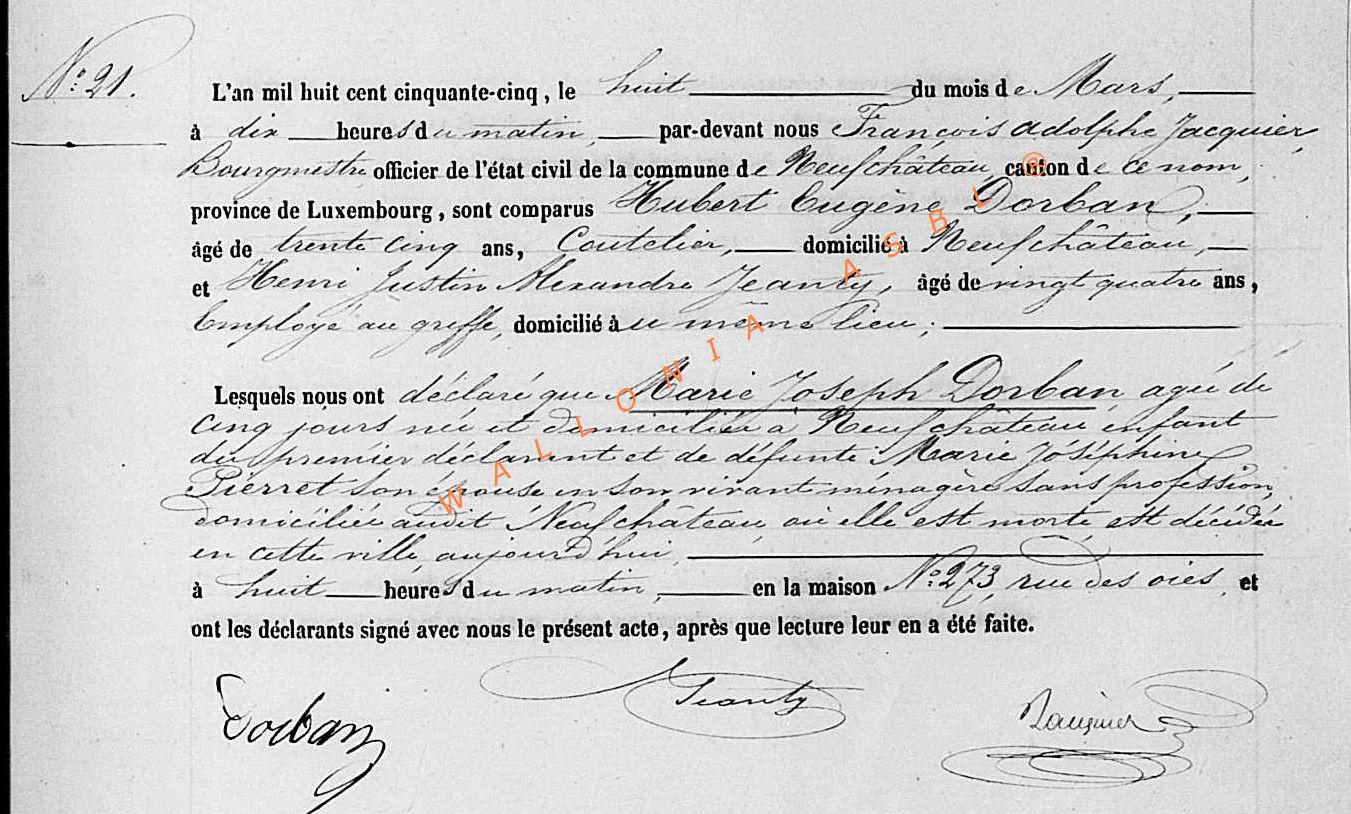 N.º 21.
L'an mil huit cent cinquante-cinq, le huit du mois de Mars,
à dix heures du matin, par-devant nous François Adolphe Jacquier,
Bourgmestre officier de l'état civil de la commune de Neufchâteau, canton de ce nom,
province de Luxembourg, sont comparus Hubert Eugène Dorban,
âgé de trente cinq ans, Coutelier, domicilié à Neufchâteau,
et Henri Justin Alexandre Jeanty, âgé de vingt quatre ans,
Employé au greffe, domicilié au même lieu;
Lesquels nous ont déclaré que Marie Joseph Dorban, agée de
cinq jours née et domiciliée à Neufchâteau enfant
du premier déclarant et de défunte Marie Joséphine
Pierret son épouse en son vivant ménagère sans profession,
domiciliée audit Neufchâteau, où elle est morte, est décédée
en cette ville, aujourd'hui,
à huit heures du matin, en la maison N.º 273, rue des oies, et
ont les déclarants signé avec nous le présent acte, après que lecture leur en a été faite.
Dorban Jeanty Jacquier
WALLONIA ASBL ®